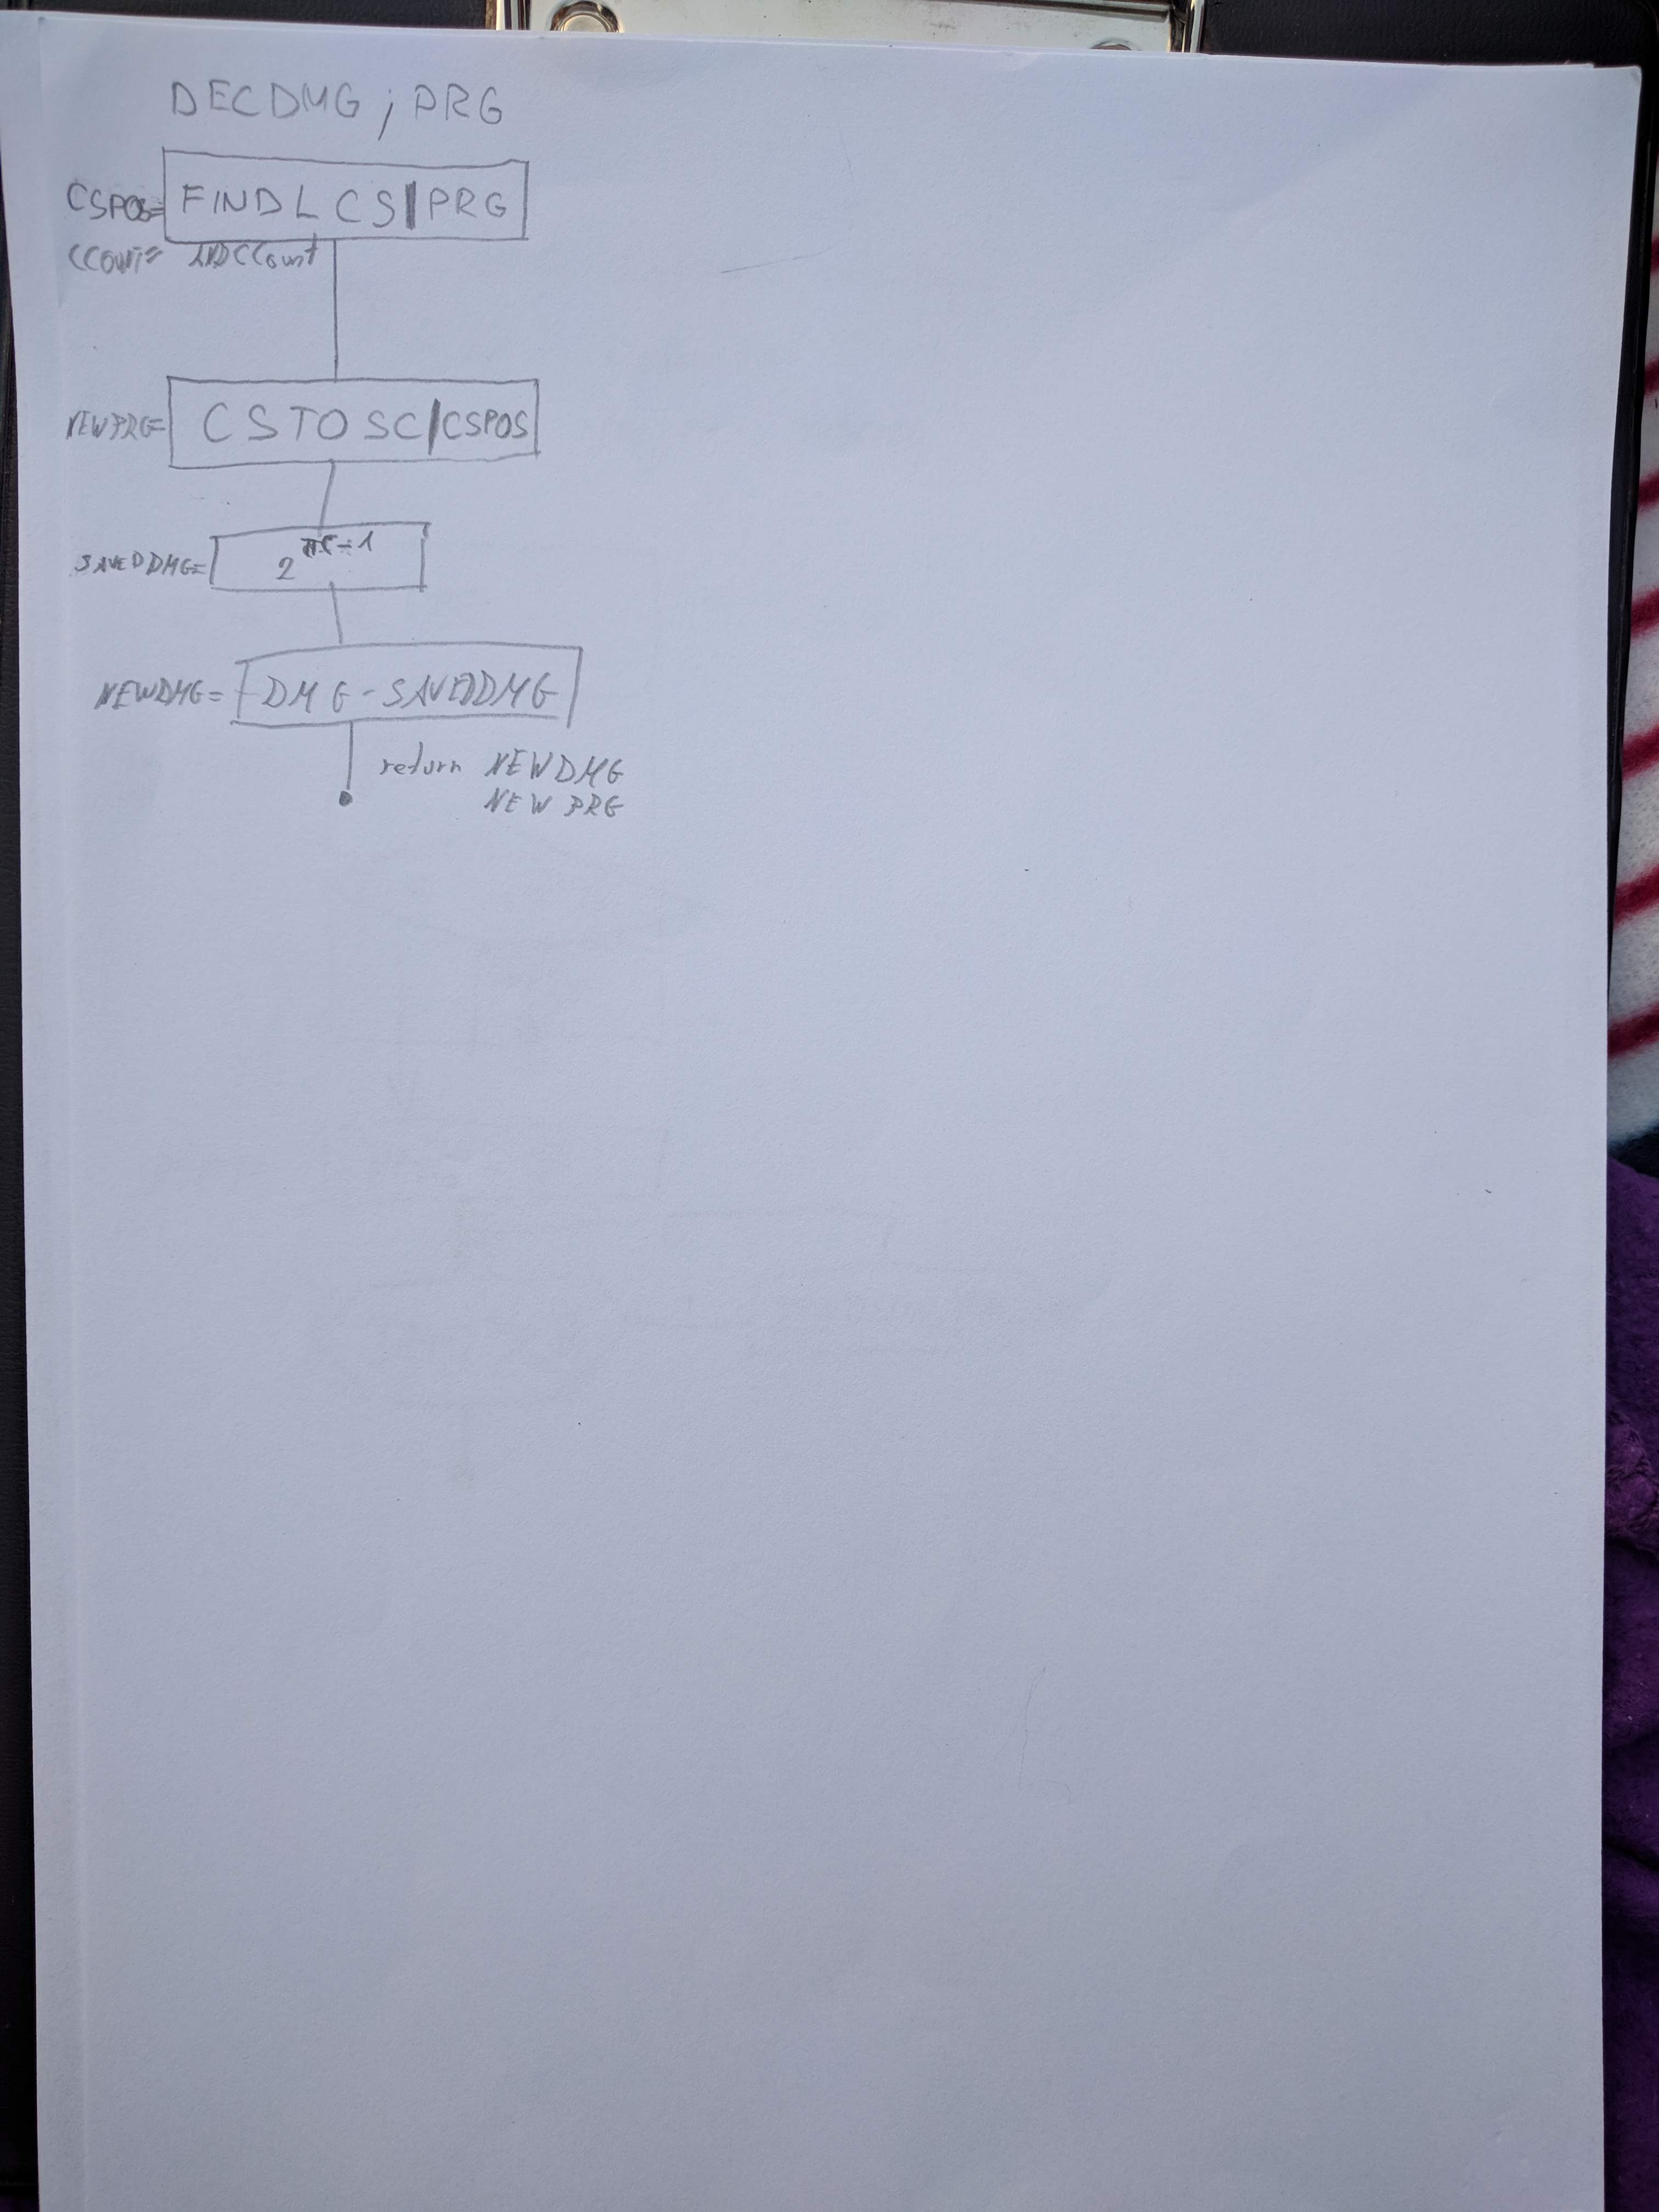 DECDMG ; PRG
CSPOS= FINDL CS | PRG
CCOUNT= ANDCCount
NEWPRG= CSTOSC | CSPOS
SAVEDDMG= 2^#C-1
NEWDMG= DMG - SAVEDDMG
return NEWDMG
NEWPRG